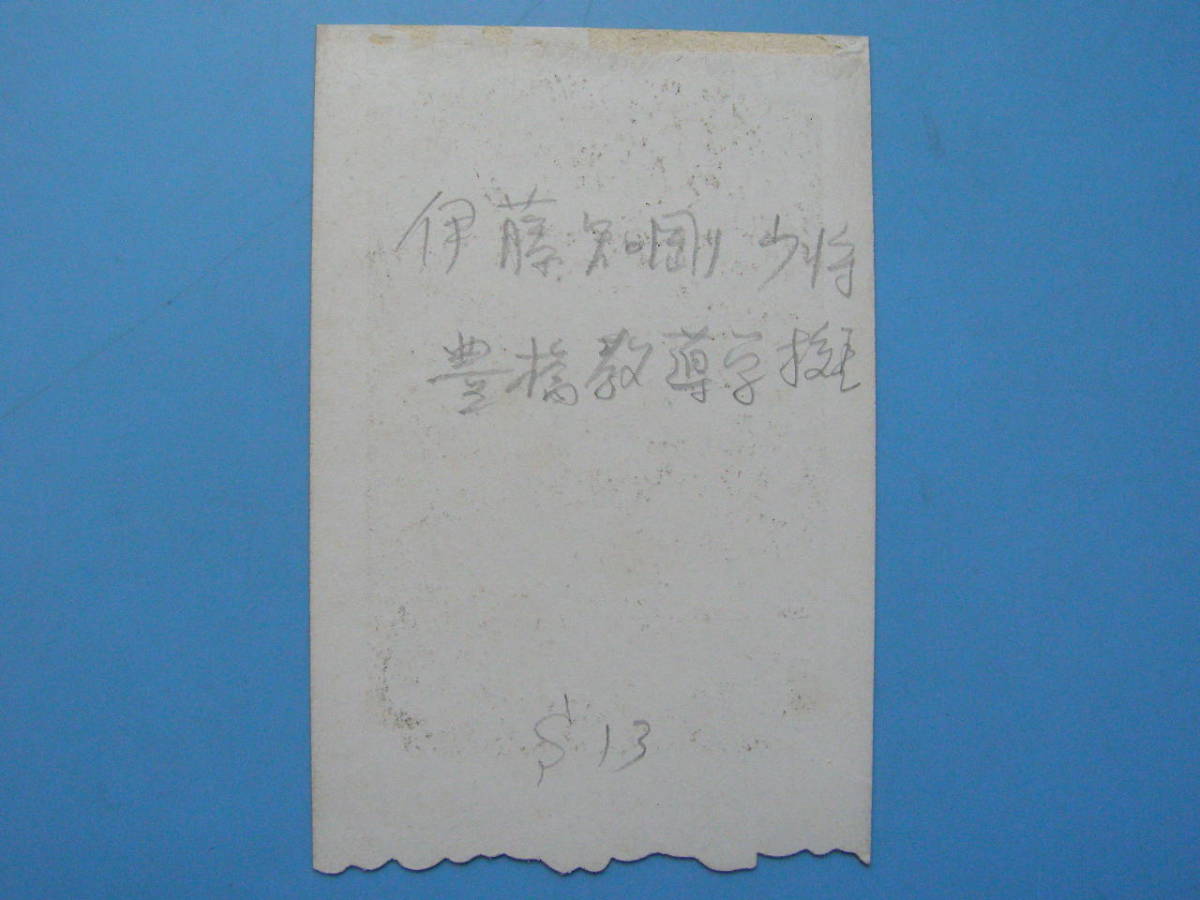 伊藤知剛少将
豊橋教導学校
S 13